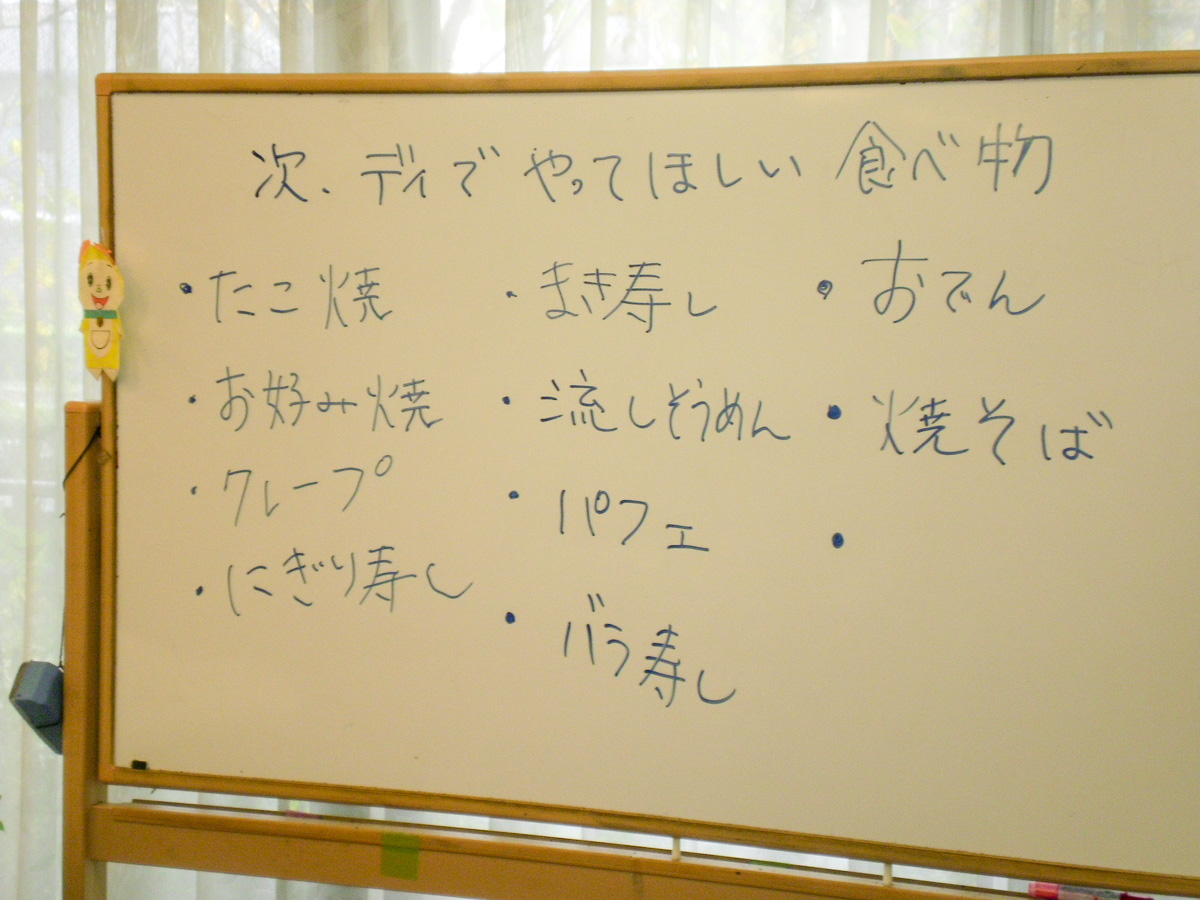 次、デイでやってほしい食べ物
・たこ焼
・お好み焼
・クレープ
・にぎり寿し
・まき寿し
・流しそうめん
・パフェ
・バラ寿し
・おでん
・焼そば
・